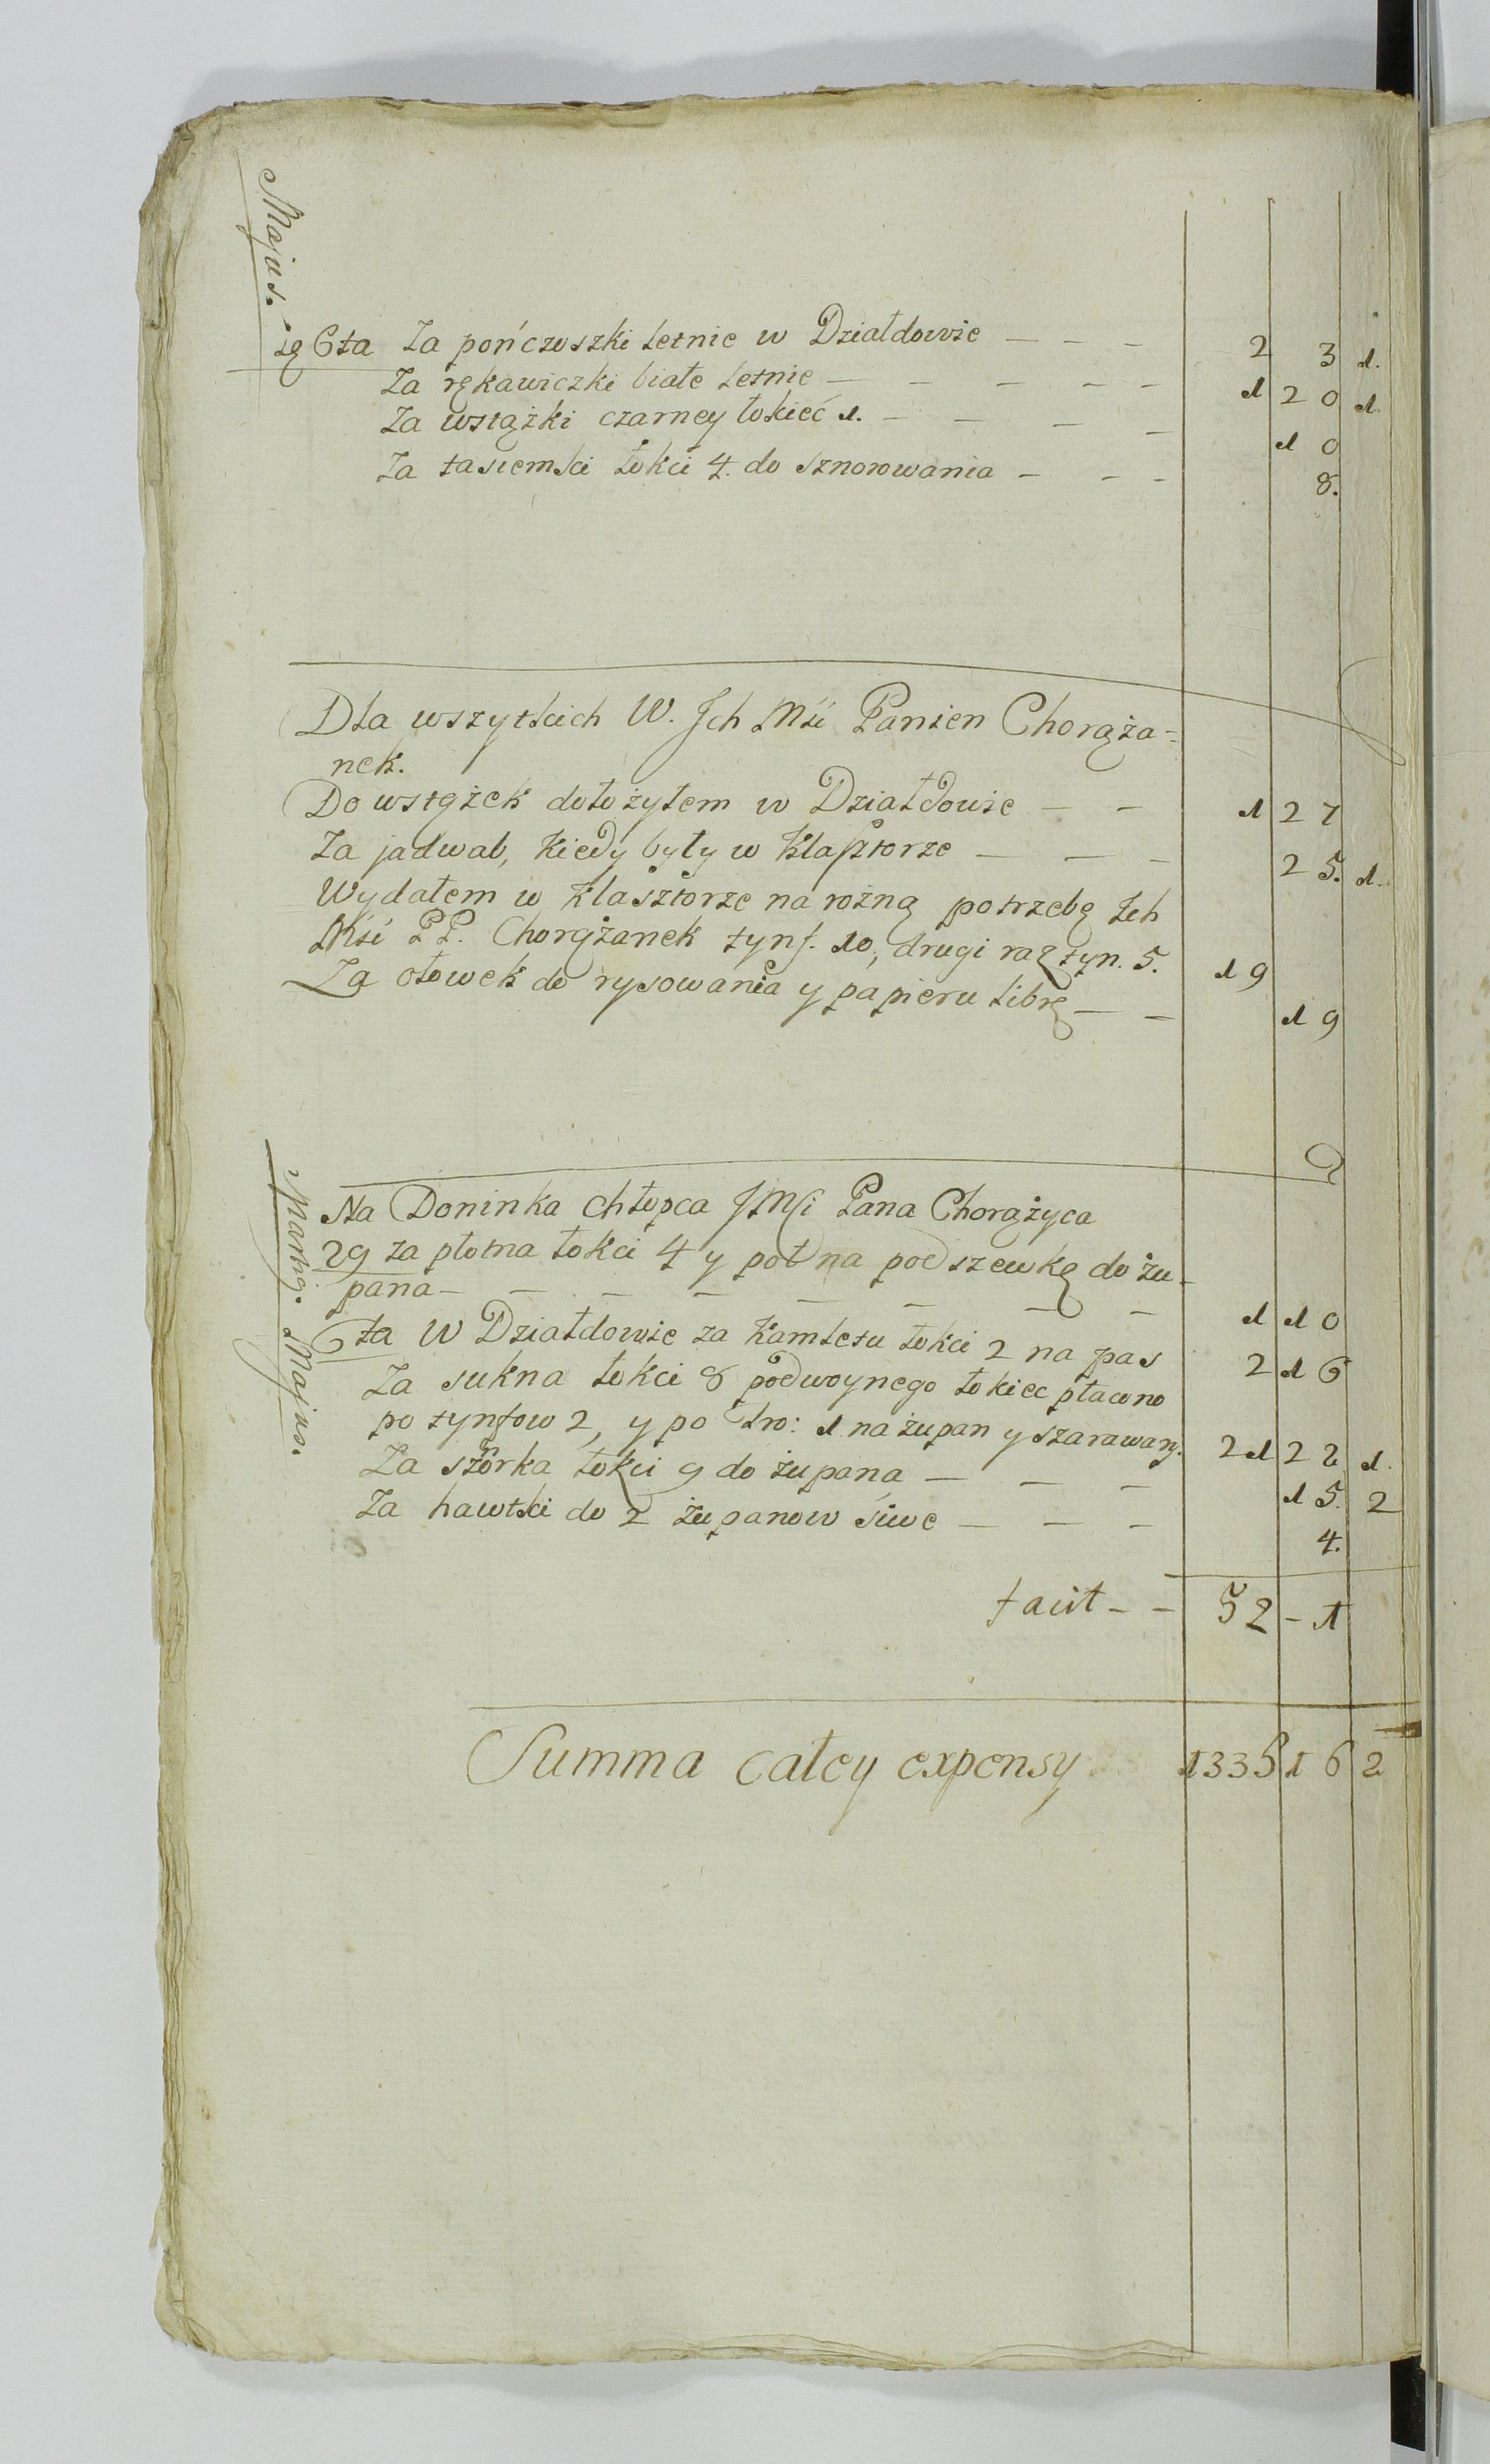 Majus.
6ta Za pończoszki letnie w Działdowie — — — 2 3 1.
Za rękawiczki białe letnie — — — — — 1 20 1.
Za wstążki czarney łokieć 1. — — — — 10
Za tasiemki łokci 4. do sznorowania — — — 8.
Dla wszytkich W. Jch Mći Panien Chorąża=
nek.
Do wstążek dołożyłem w Działdowie — — 1 27
Za jadwab, kiedy były w klasztorze — — — 25. 1.
Wydałem w klasztorze na rożną potrzebę Ich
Mśći PP. Chorążanek tynf. 10, drugi raz tyn. 5. 19
Za ołowek do rysowania y papieru librę — — 19
Na Doninka chłopca JMći Pana Chorążyca
Martij. 29 za płotna łokci 4 y poł na podszewkę do żu-
pana — — — — — — — — 1 10
Majus. 6ta W Działdowie za kamletu łokci 2 na pas 2 16
Za sukna łokci 8 podwoynego łokiec płacono
po tynfow 2, y po tro: 1 na żupan y szarawary. 21 22 1.
Za sztorka łokci 9 do żupana — — — 15. 2
Za hawtki do 2 żupanow siwe — — — 4.
facit — — 52 — 1
Summa całey expensy 1335 16 2